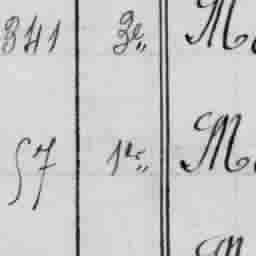 341 3e„ M
57 1er„ M
M